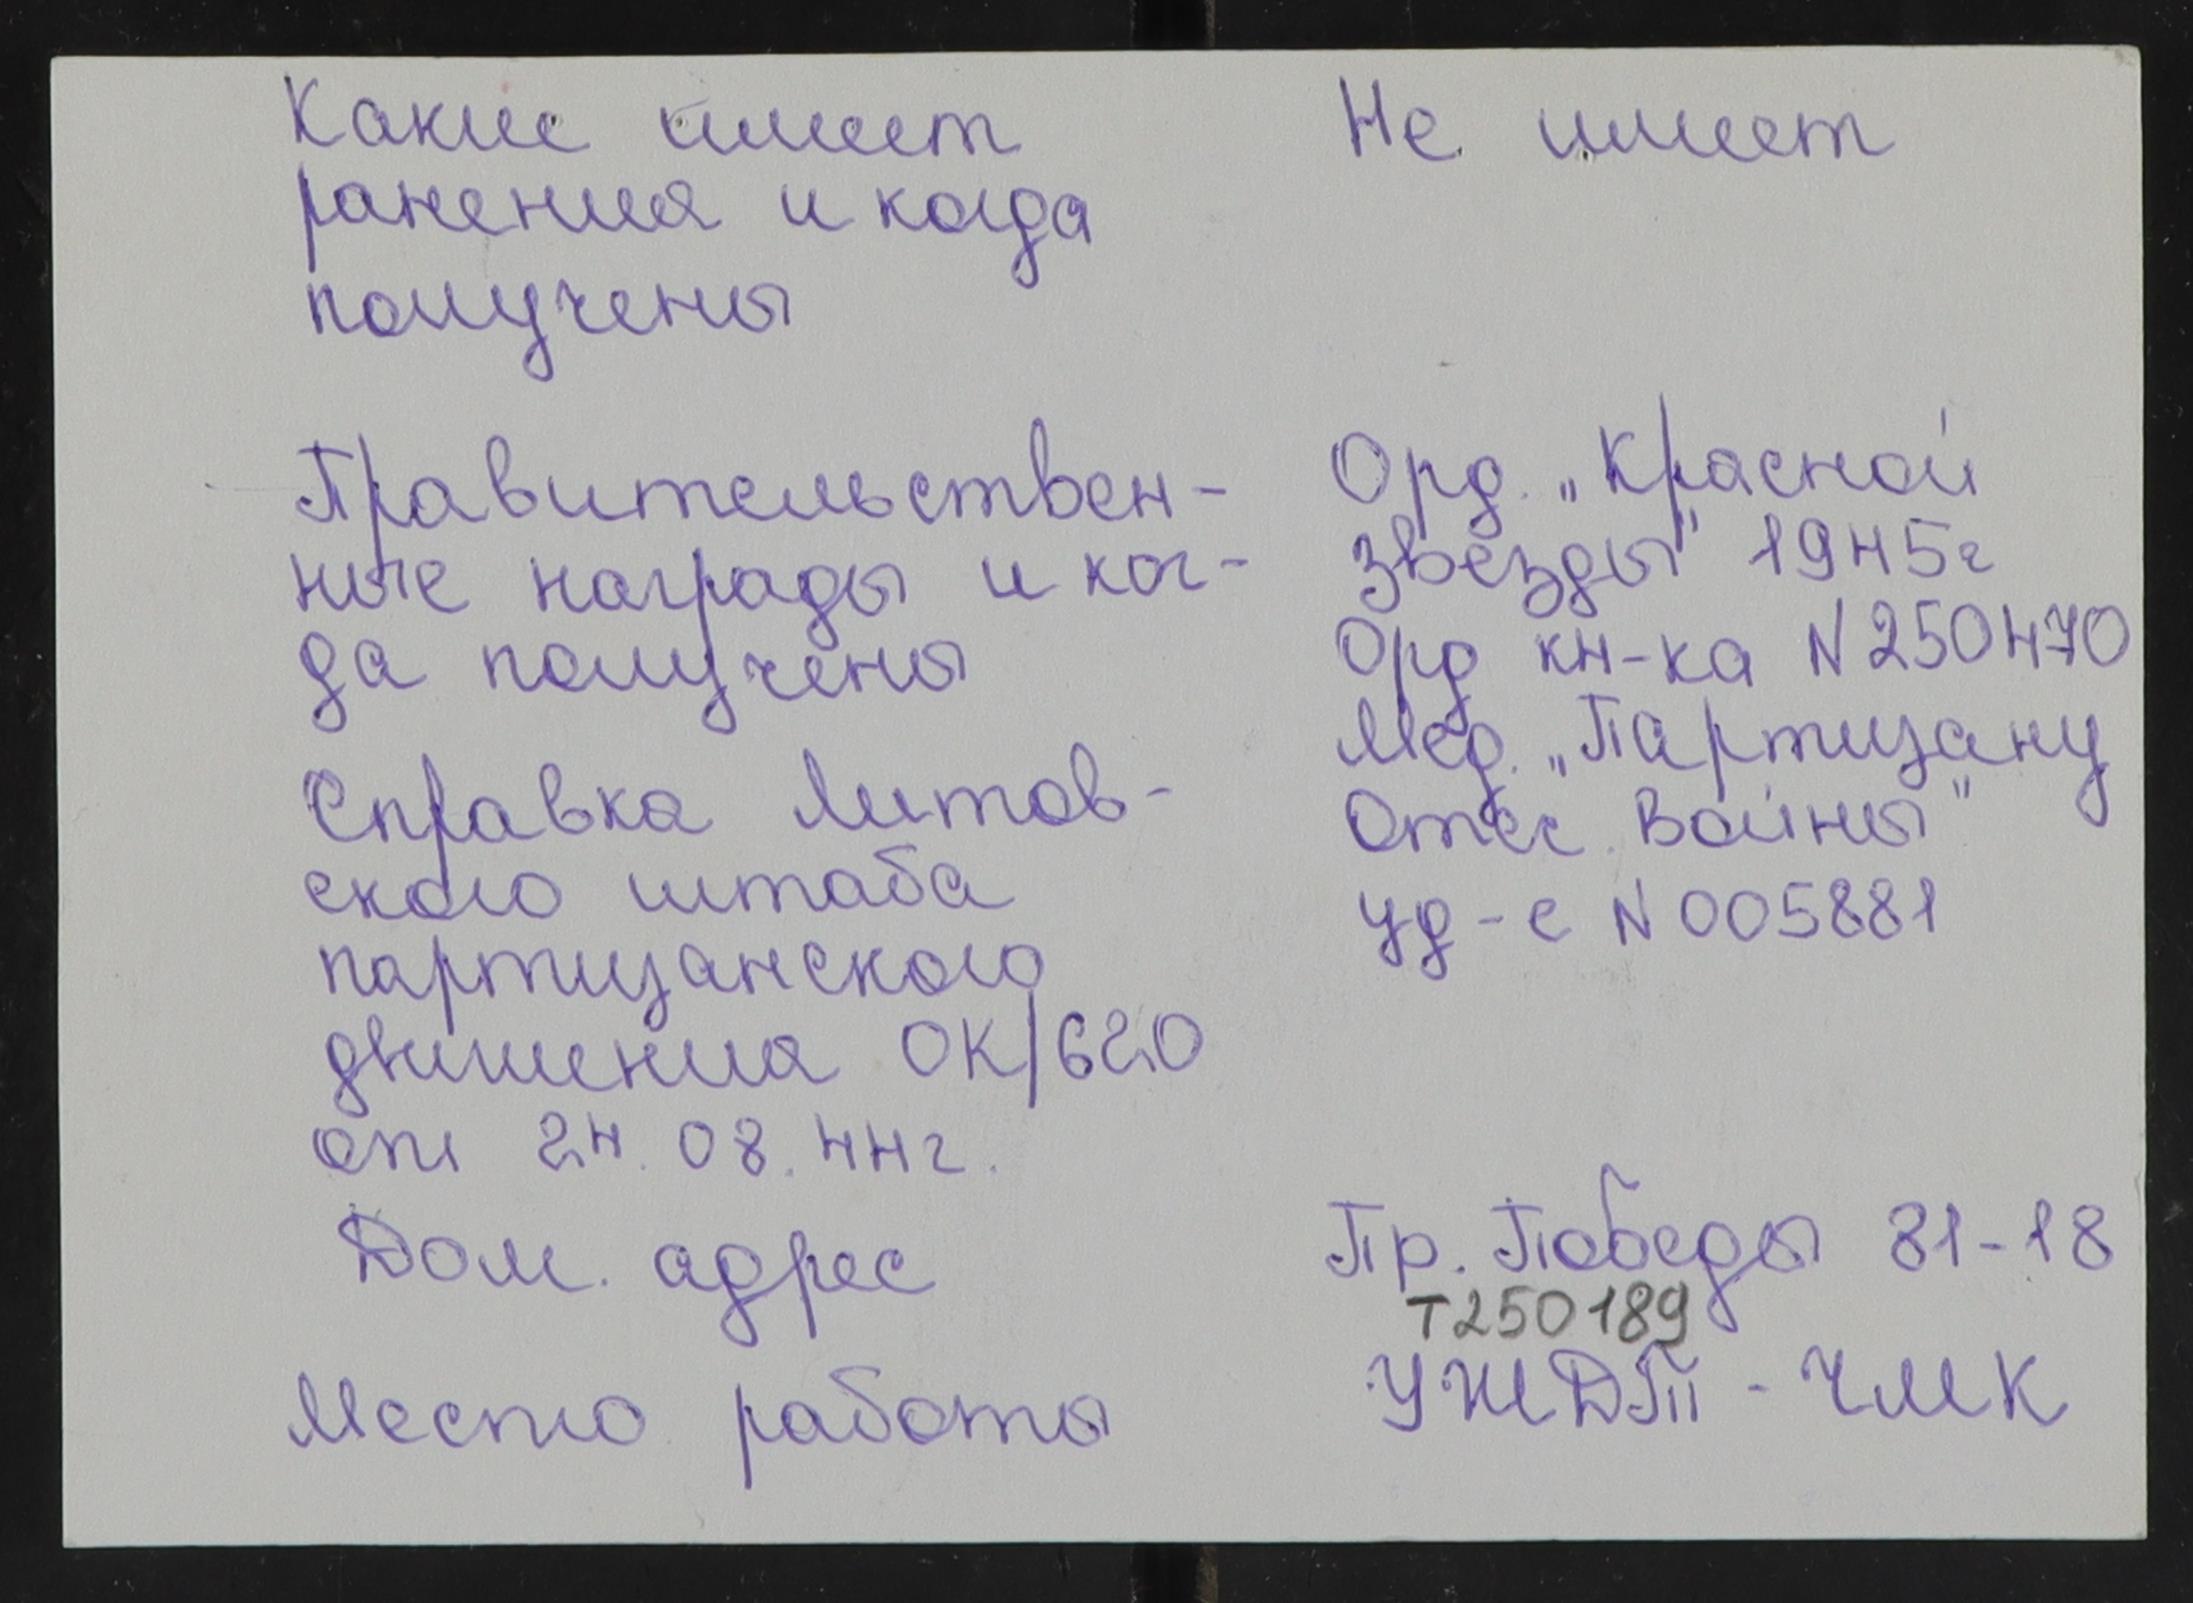 Какие имеет
ранения и когда
получены
Не имеет
Правительствен-
ные награды и ког-
да получены
Орд. „Красной
Звезды" 1945г
Орд кн-ка N250470
Мед. „Партизану
Отеч. Войны"
уд-е N 005881
Справка Литов-
ского штаба
партизанского
движения ОК/620
от 24.08.44г.
Дом. адрес
Пр. Победы 81-18
Т250189
Место работы
УЖДТ - ЧМК